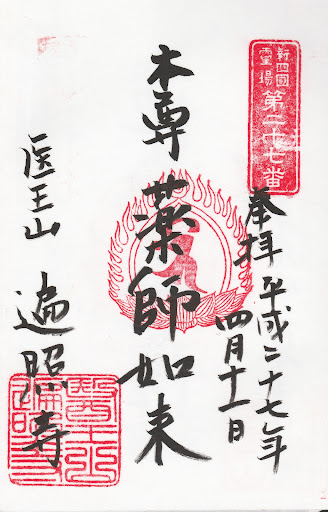 新四國
霊場
第二十七番
奉拝
平成二十七年
四月十一日
本尊
薬師如来
医王山
遍照寺